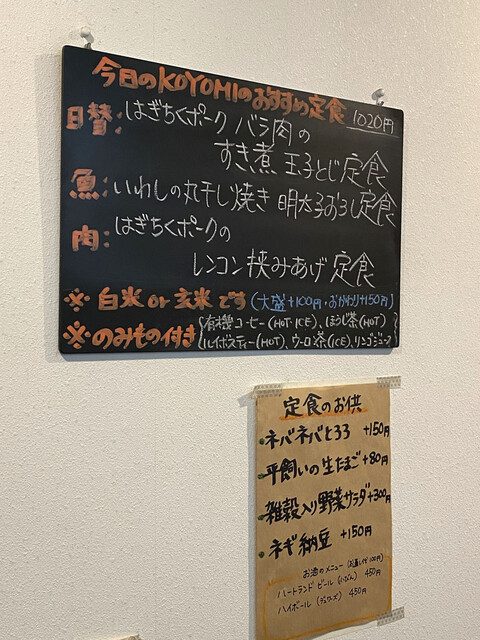 今日のKOYOMIのおすすめ定食 1020円
日替: はぎちくポーク バラ肉の
すき煮 玉子とじ 定食
魚: いわしの丸干し焼き 明太子おろし定食
肉: はぎちくポークの
レンコン挟みあげ 定食
※ 白米 or 玄米 です (大盛+100円・おかわり+150円)
※のみもの付き {有機コーヒー(HOT・ICE)、ほうじ茶(HOT)
ルイボスティー(HOT)、ウーロン茶(ICE)、リンゴジュース}
定食のお供
ネバネバとろろ +150円
平飼いの生たまご +80円
雑穀入り野菜サラダ+300円
ネギ納豆 +150円
お酒のメニュー
ハートランド ビール (小びん) 450円
ハイボール (デュワーズ) 450円